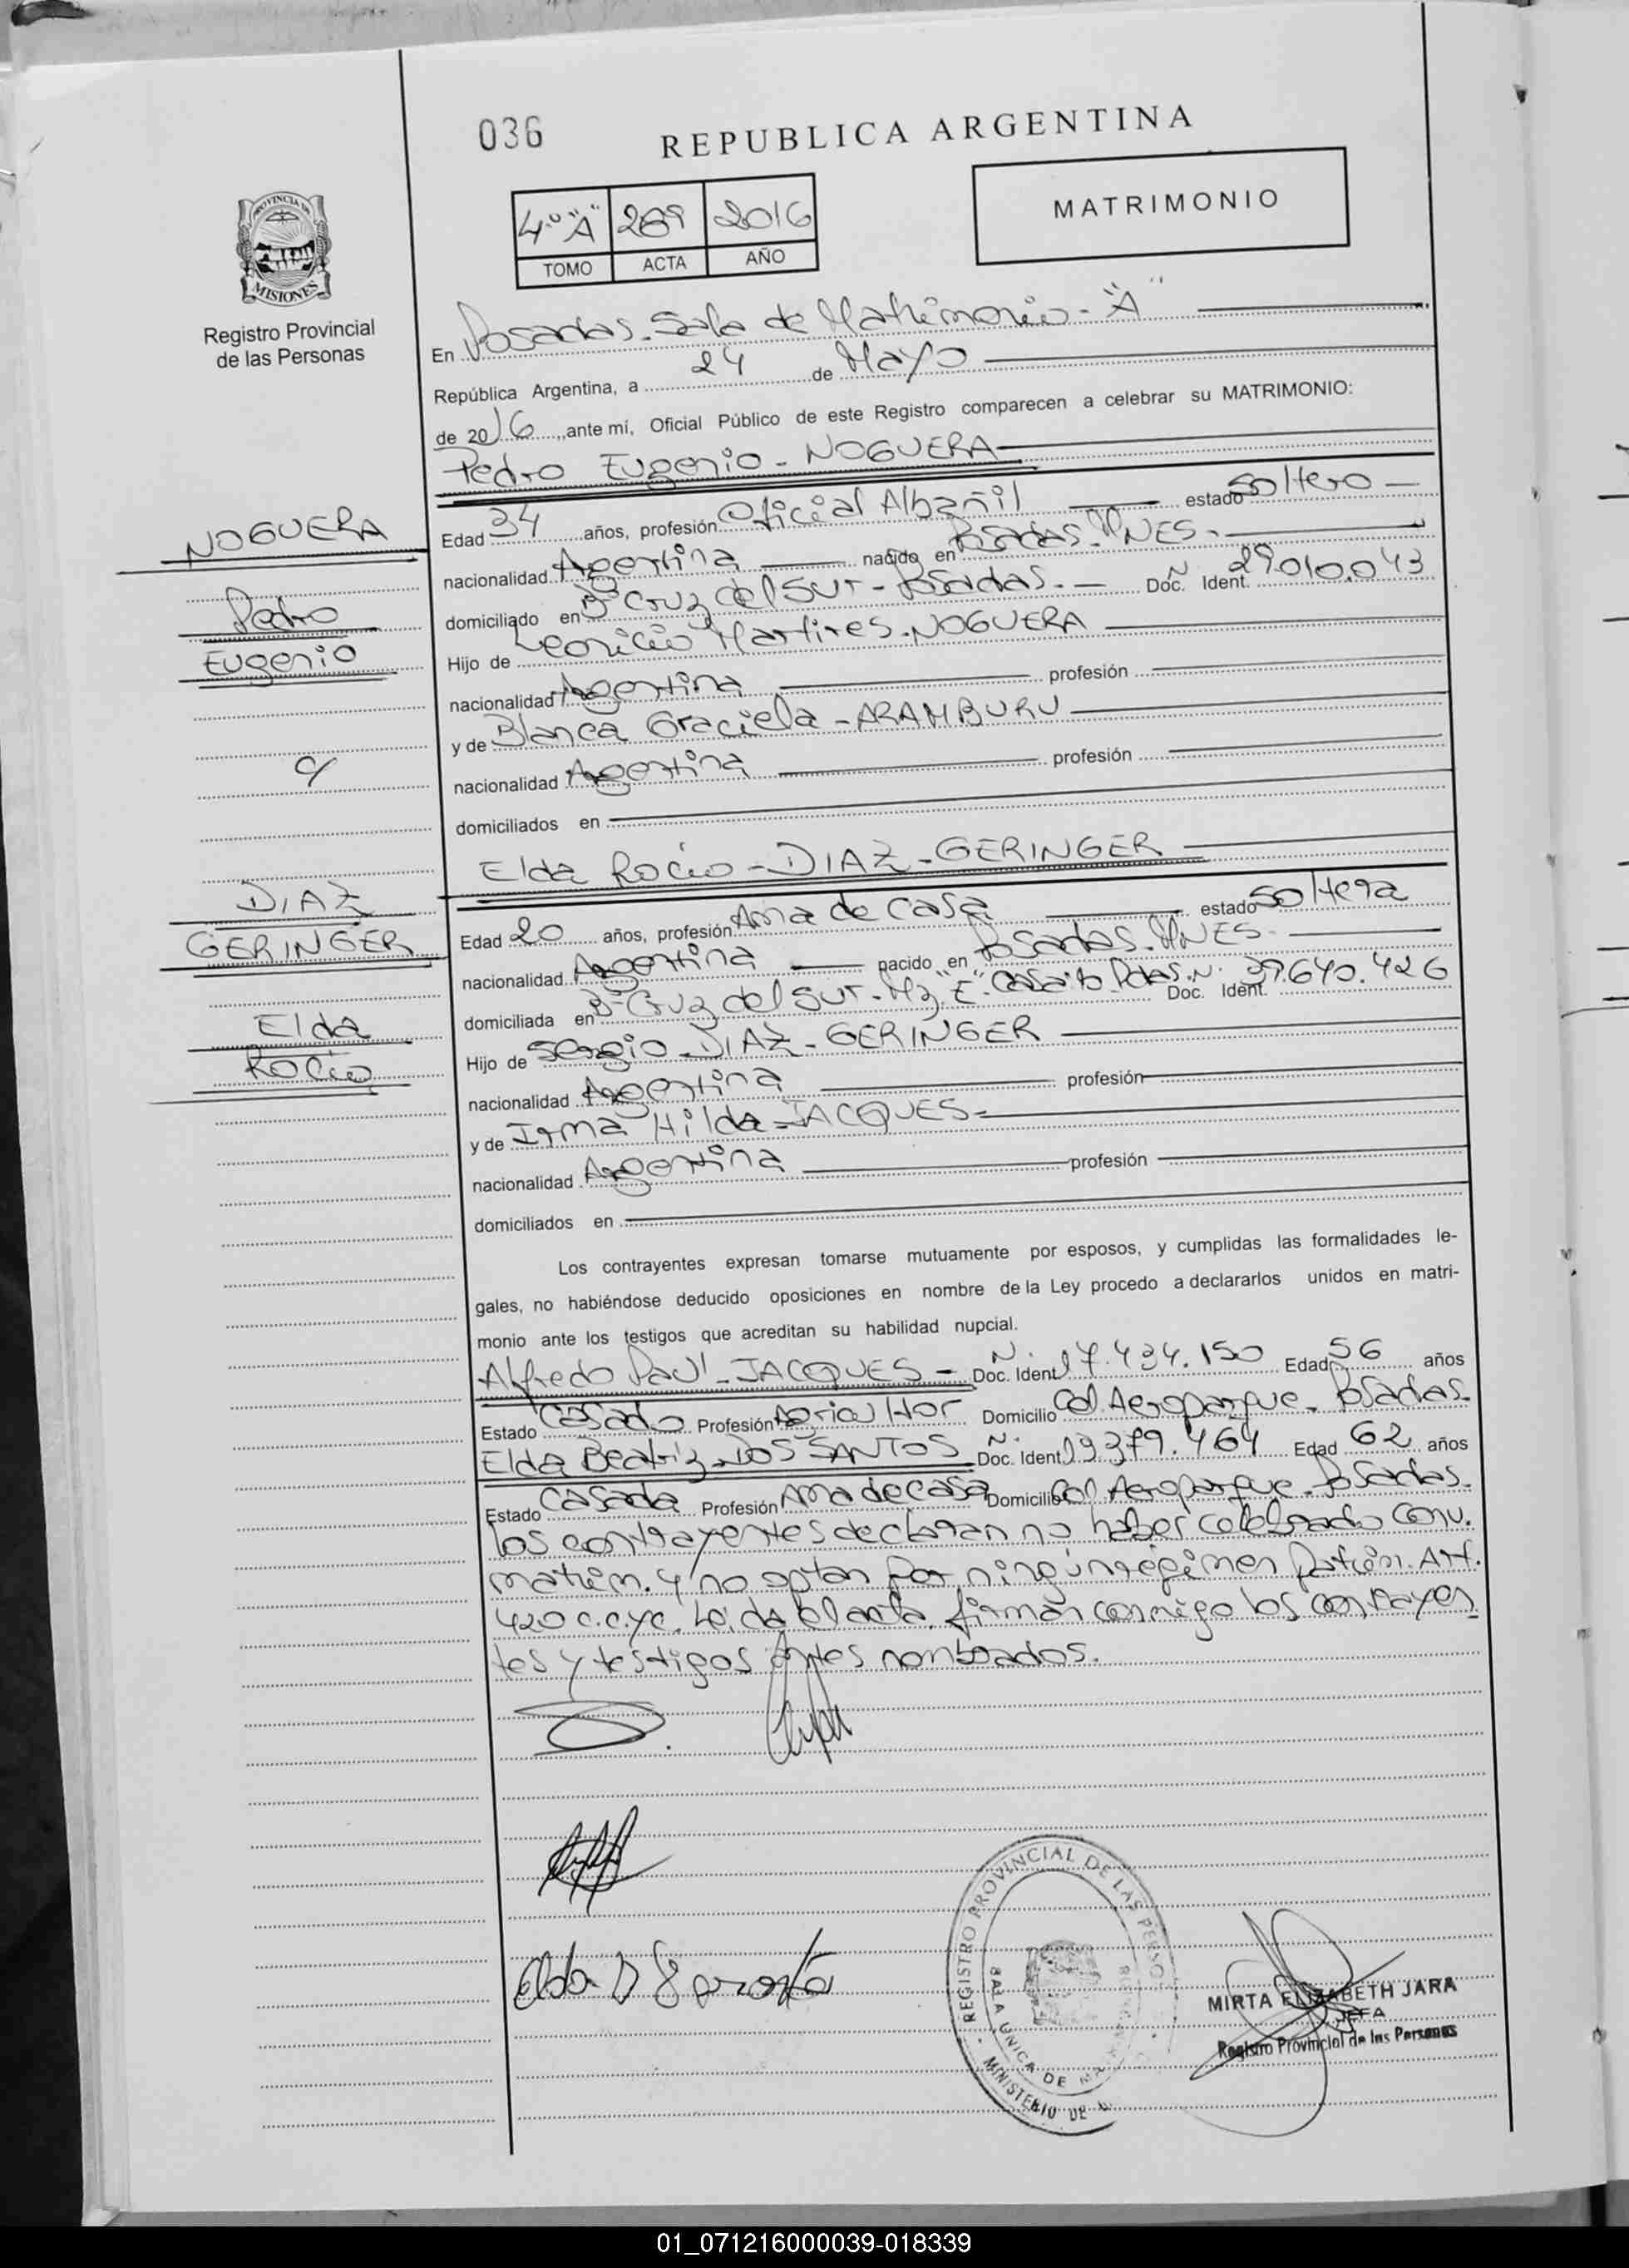 036
REPUBLICA ARGENTINA
PROVINCIA DE
MISIONES
Registro Provincial
de las Personas
4º "A" 289 2016
TOMO ACTA AÑO
MATRIMONIO
En Posadas. Sala de Matrimonio - "A"
República Argentina, a 24 de Mayo
de 2016, ante mí, Oficial Público de este Registro comparecen a celebrar su MATRIMONIO:
Pedro Eugenio - NOGUERA
NOGUERA
Pedro
Eugenio
c/
DIAZ
GERINGER
Elda
Rocio
Edad 34 años, profesión Oficial Albañil estado soltero
nacionalidad Argentina nacido en Posadas. MNES.
domiciliado en Bº Cruz del Sur - Posadas. Doc. Ident. Nº 29.010.043
Hijo de Leonicio Martires. NOGUERA
nacionalidad Argentina profesión
y de Blanca Graciela - ARAMBURU
nacionalidad Argentina profesión
domiciliados en
Elda Rocio - DIAZ - GERINGER
Edad 20 años, profesión Ama de casa estado soltera
nacionalidad Argentina nacido en Posadas. MNES.
domiciliada en Bº Cruz del Sur. Mz "E" Casa Pdas. Doc. Ident. Nº 39.640.426
Hijo de Sergio - DIAZ - GERINGER
nacionalidad Argentina profesión
y de Irma Hilda - JACQUES
nacionalidad Argentina profesión
domiciliados en
Los contrayentes expresan tomarse mutuamente por esposos, y cumplidas las formalidades le-
gales, no habiéndose deducido oposiciones en nombre de la Ley procedo a declararlos unidos en matri-
monio ante los testigos que acreditan su habilidad nupcial.
Alfredo Paul - JACQUES - Doc. Ident. Nº 17.434.150 Edad 56 años
Estado Casado Profesión Agricultor Domicilio Col. Aeroparque. Posadas.
Elda Beatriz - DOS SANTOS Doc. Ident. Nº 19.379.464 Edad 62 años
Estado Casada Profesión Ama de casa Domicilio Col. Aeroparque. Posadas.
los contrayentes declaran no haber celebrado conv.
matrim. y no optan por ningún régimen patrim. Art.
420 c.c.yc. Leida el acta, firman conmigo los contrayen
tes y testigos antes nombrados.
REGISTRO PROVINCIAL DE LAS PERSO
SALA UNICA DE
MINISTERIO DE
MIRTA ELIZABETH JARA
JEFA
Registro Provincial de las Personas
01_071216000039-018339